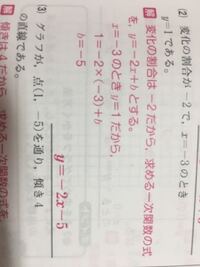 (2) 変化の割合が−2で，x=−3のとき
y=1である。
解 変化の割合は−2だから，求める一次関数の式
を，y=−2x+bとする。
x=−3のときy=1だから，
1=−2×(−3)+b
b=−5
y=−2x−5
(3) グラフが，点(1，−5)を通り，傾き4
の直線である。
解 傾きは4だから，求める一次関数の式を，